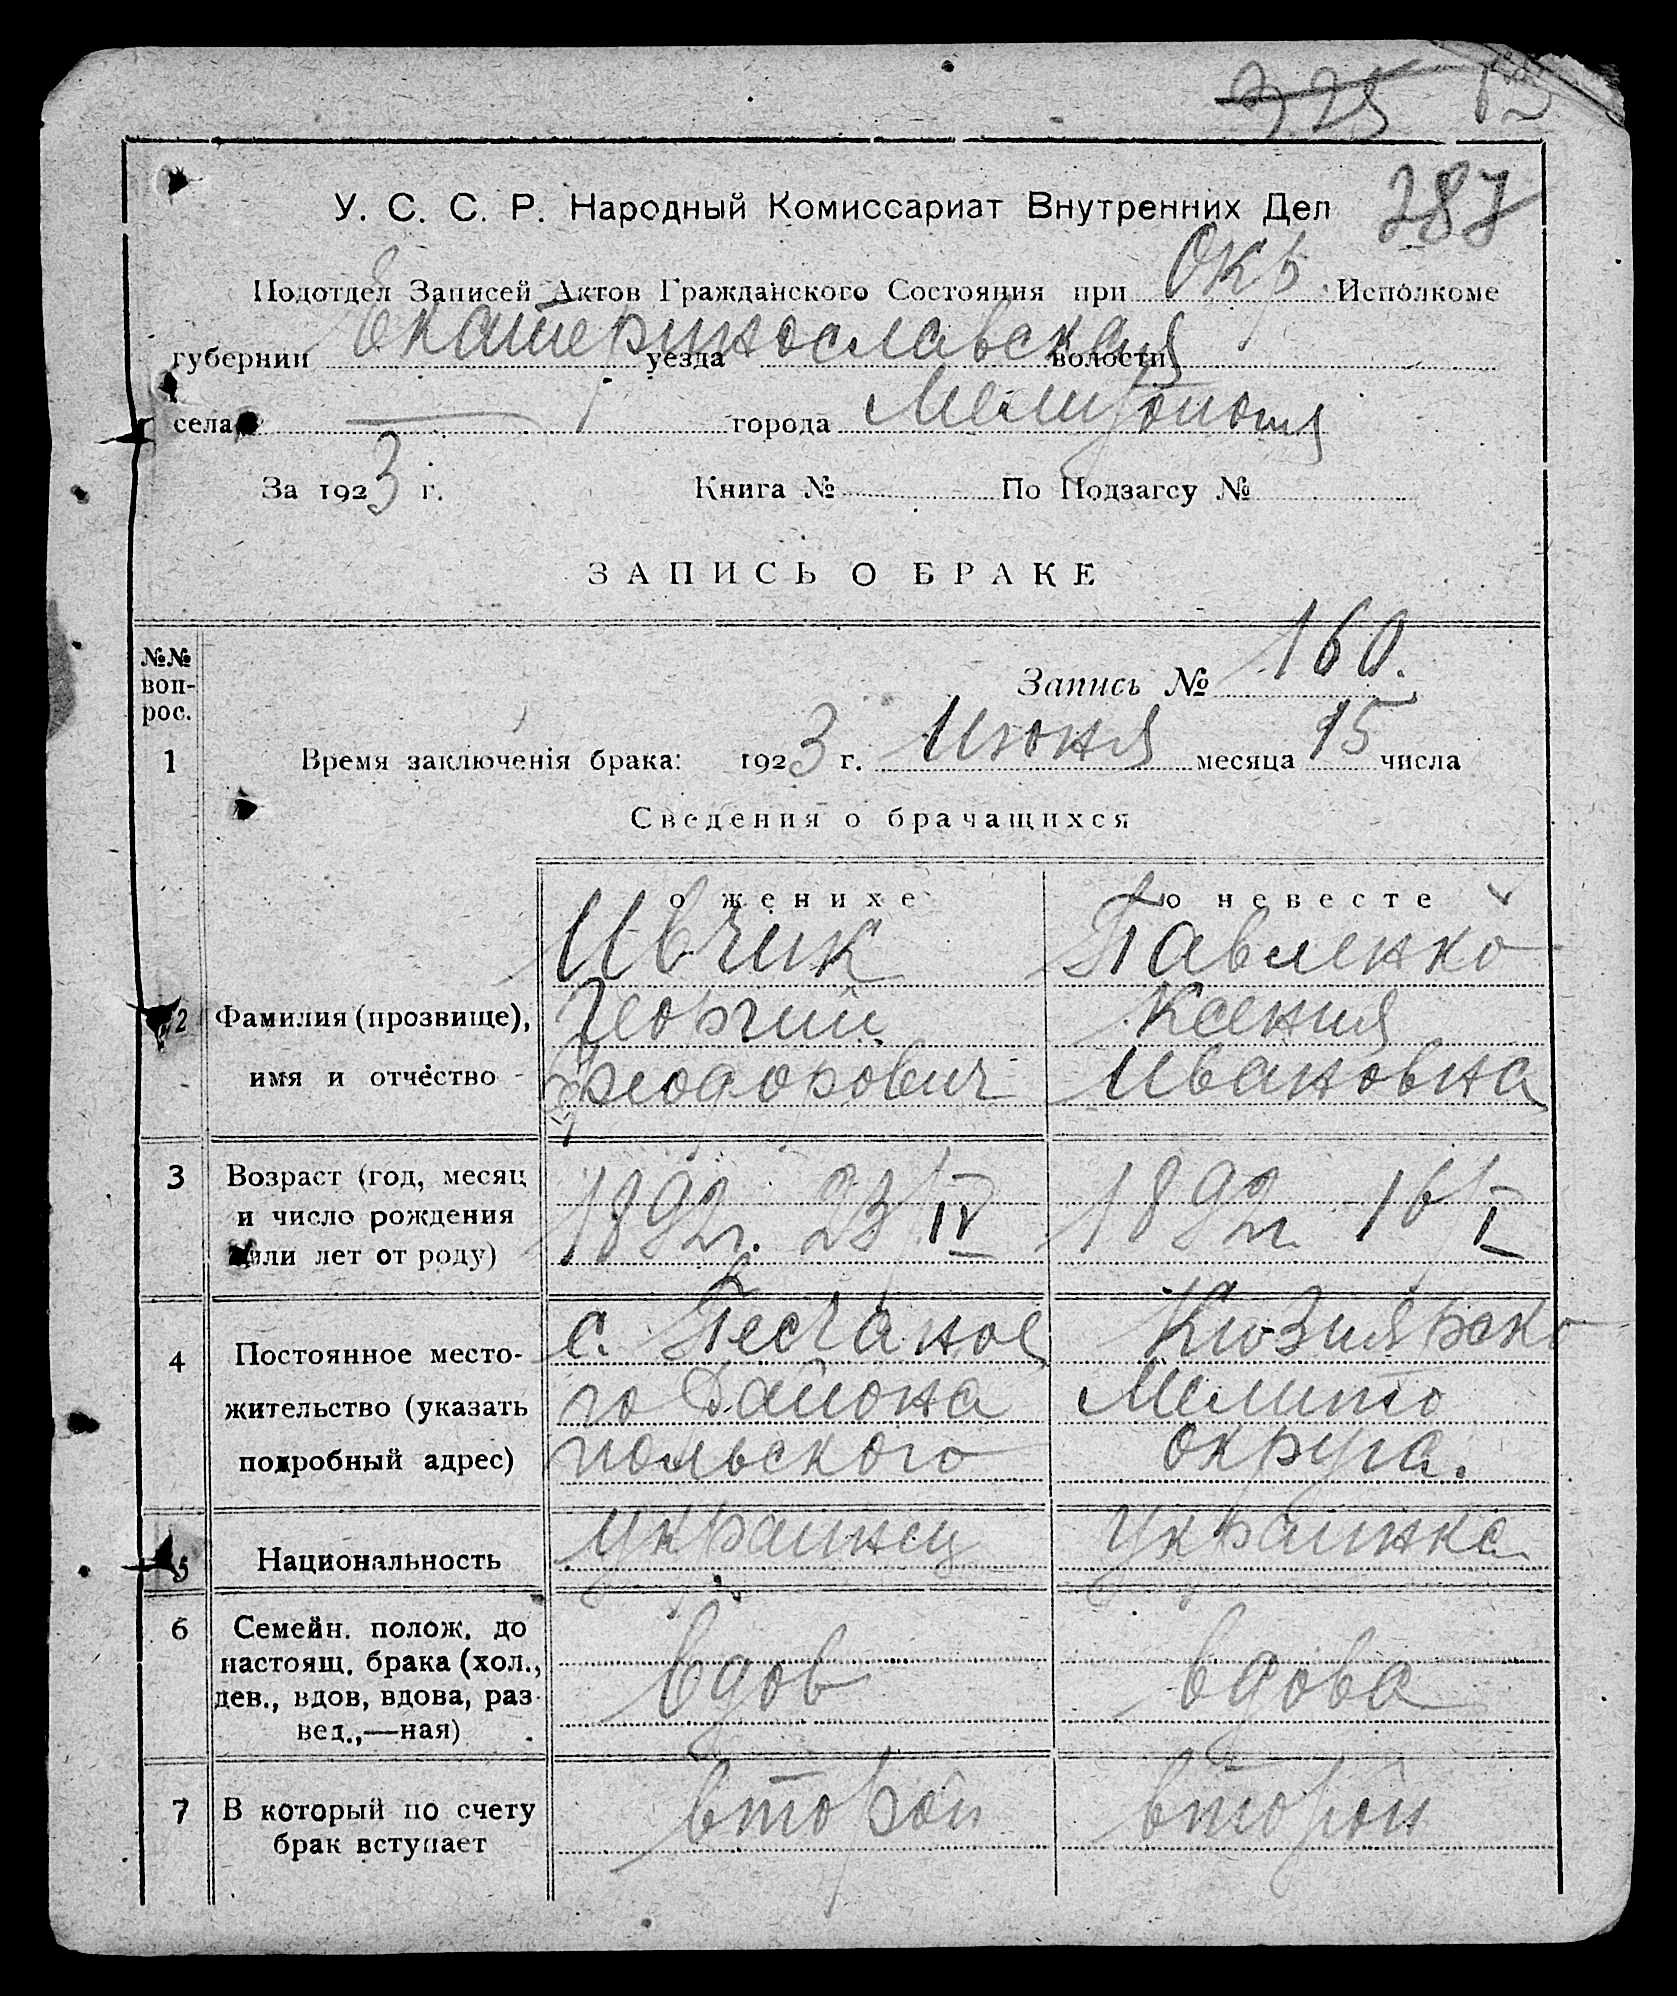 325
287
У. С. С. Р. Народный Комиссариат Внутренних Дел
Подотдел Записей Актов Гражданского Состояния при Окр. Исполкоме
губернии Екатеринославская уезда волости
села — города Мелитополя
За 1923 г. Книга № По Подзагсу №
ЗАПИСЬ О БРАКЕ
№№ воп-
рос.
Запись № 160.
1 Время заключенія брака: 1923 г. Июня месяца 15 числа
Сведения о брачащихся
о женихе о невесте
Ивчик Павленко
Георгий Ксения
2 Фамилия (прозвище),
имя и отчество
Феодорович Ивановна
3 Возраст (год, месяц
и число рождения
или лет от роду)
1892г. 23/IV 1892г. 16/I
4 Постоянное место-
жительство (указать
подробный адрес)
с. Песчаное Кизиярско
го Района Мелито
польского округа.
5 Национальность украинец украинка
6 Семейн. полож. до
настоящ. брака (хол.,
дев., вдов, вдова, раз-
вед.,—ная)
вдов вдова
7 В который по счету
брак вступает
второй второй